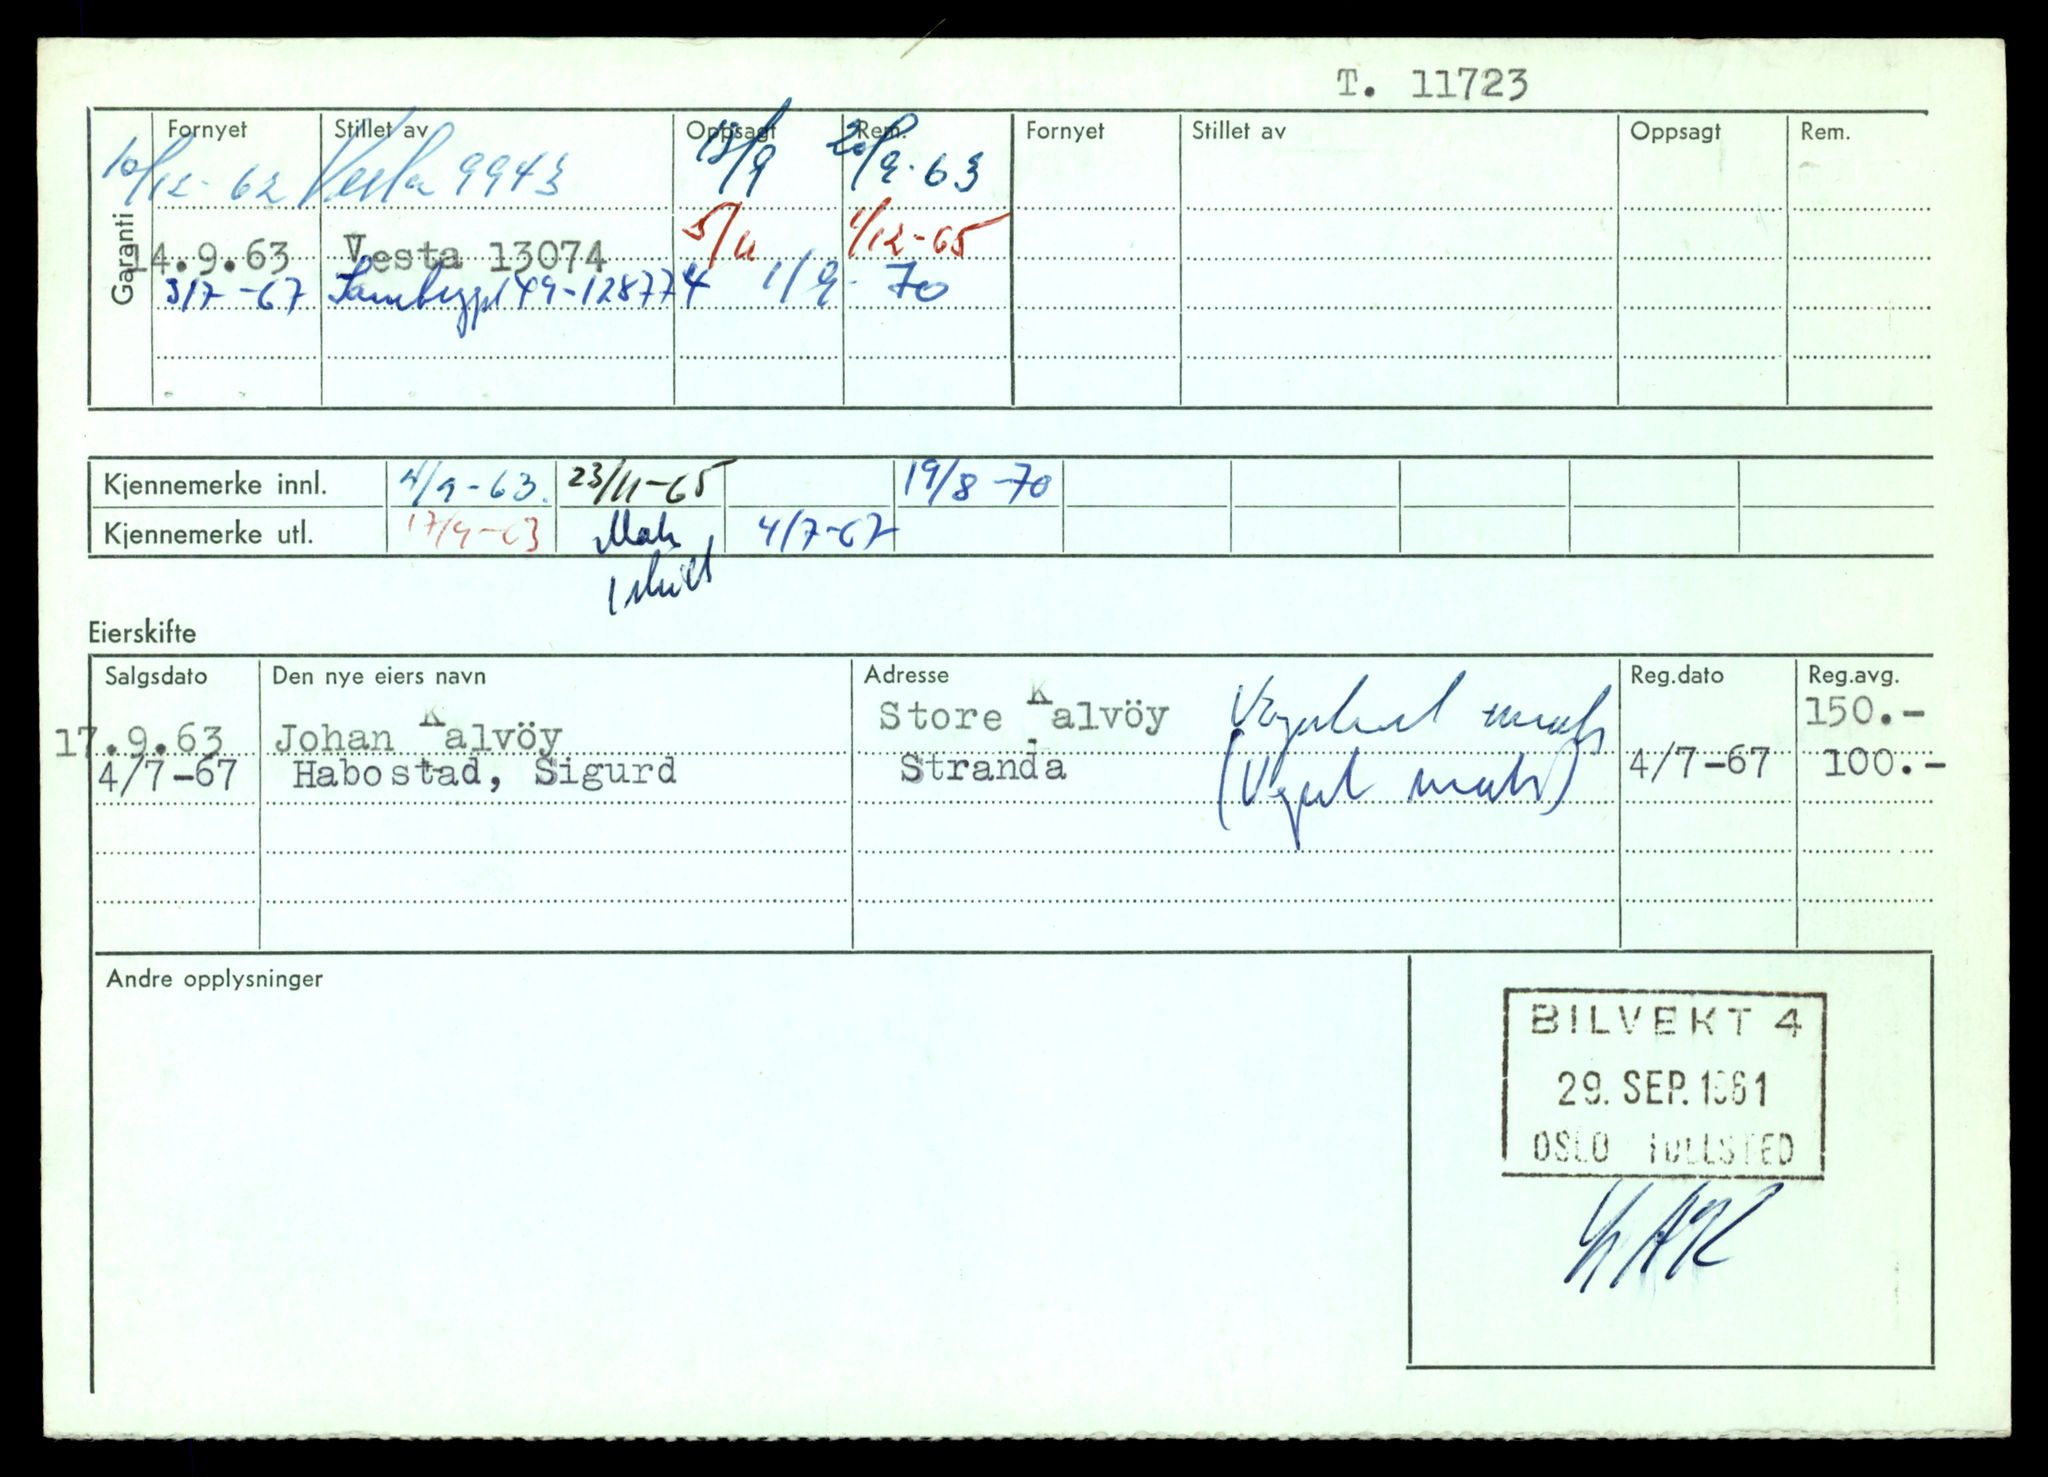 T. 11723
Garanti
Fornyet Stillet av Oppsagt Rem. Fornyet Stillet av Oppsagt Rem.
10/12-62 Vesta 9943 13/9 20/9-63
14.9.63 Vesta 13074 5/11 1/12-65
3/7-67 149-128774 1/9-70
Kjennemerke innl. 4/9-63. 23/11-65 19/8-70
Kjennemerke utl. 17/9-63 4/7-67
Eierskifte
Salgsdato Den nye eiers navn Adresse Reg.dato Reg.avg.
17.9.63 Johan Kalvöy Store Kalvöy 150.-
4/7-67 Habostad, Sigurd Stranda 4/7-67 100.-
Andre opplysninger
BILVEKT 4
29. SEP. 1961
OSLO TOLLSTED